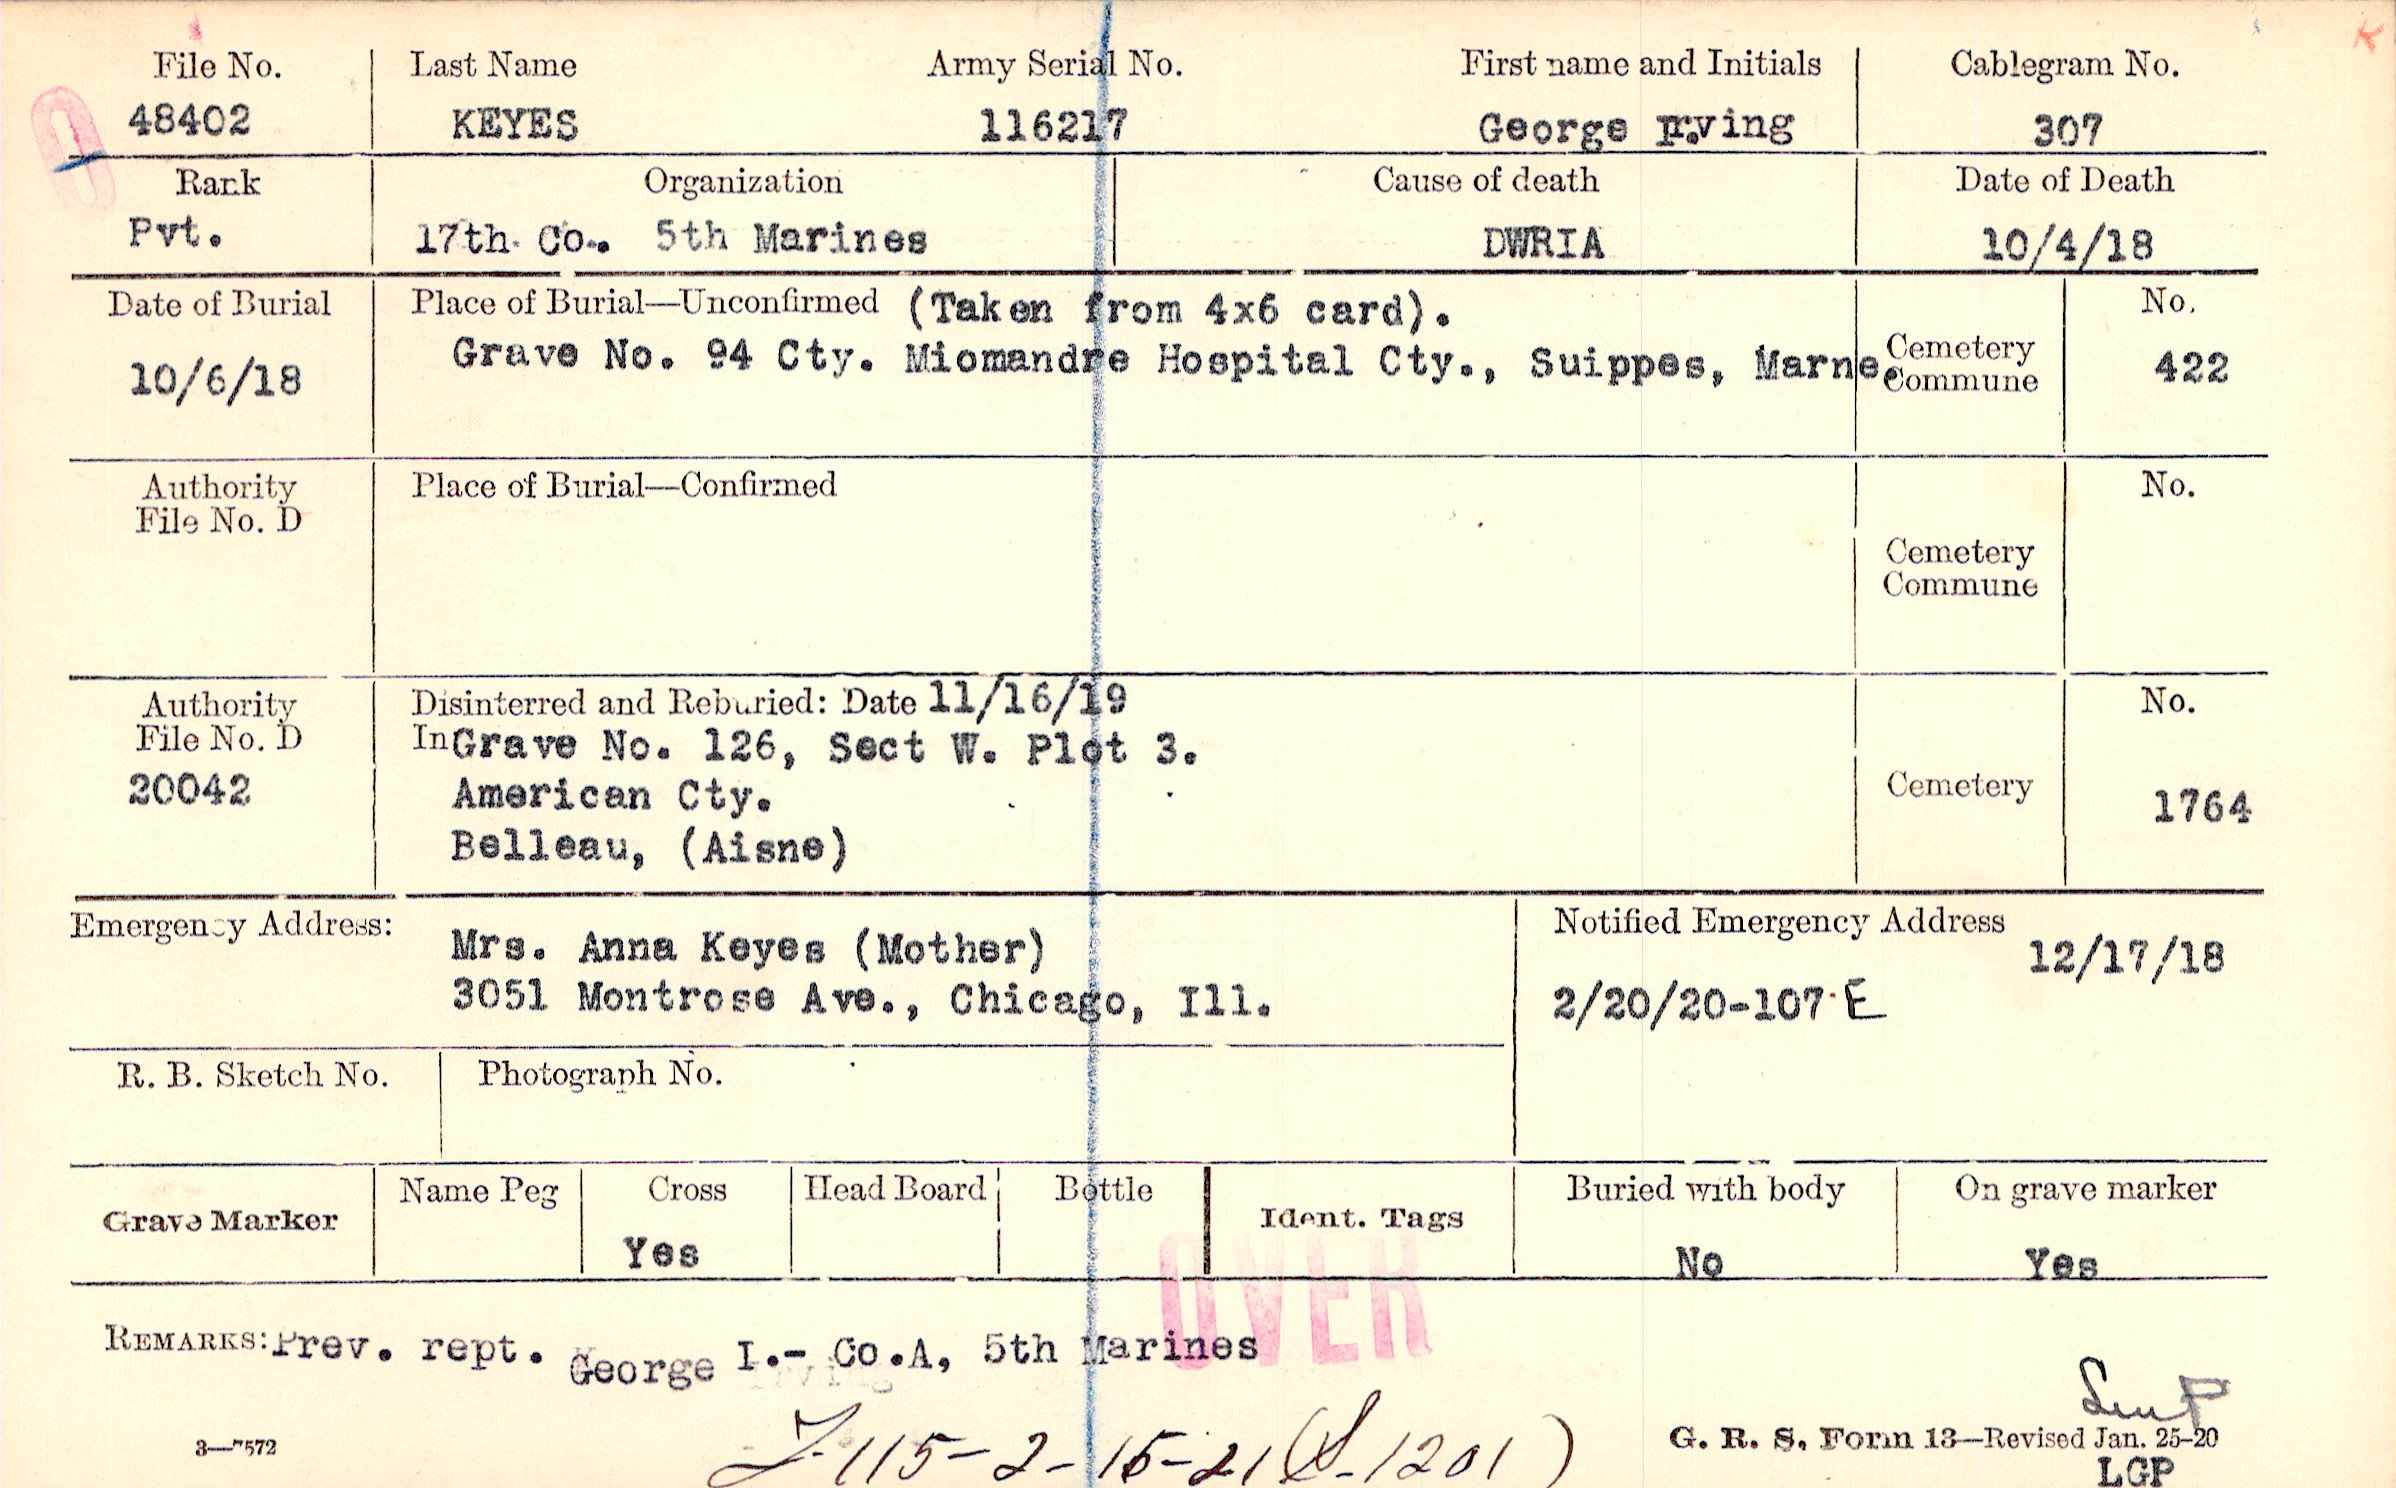 File No. Last Name Army Serial No. First name and Initials Cablegram No.
48402 KEYES 116217 George Irving 307
Rank Organization Cause of death Date of Death
Pvt. 17th Co. 5th Marines DWRIA 10/4/18
Date of Burial Place of Burial—Unconfirmed (Taken from 4x6 card). No.
10/6/18 Grave No. 94 Cty. Miomandre Hospital Cty., Suippes, Marne. Cemetery Commune 422
Authority Place of Burial—Confirmed No.
File No. D
Cemetery
Commune
Authority Disinterred and Reburied: Date 11/16/19 No.
File No. D In Grave No. 126, Sect W. Plot 3.
20042 American Cty. Cemetery 1764
Belleau, (Aisne)
Emergency Address: Mrs. Anna Keyes (Mother) Notified Emergency Address 12/17/18
3051 Montrose Ave., Chicago, Ill. 2/20/20-107 E
R. B. Sketch No. Photograph No.
Grave Marker Name Peg Cross Head Board Bottle Ident. Tags Buried with body On grave marker
Yes No Yes
OVER
REMARKS: Prev. rept. George I.- Co.A, 5th Marines
115-2-15-21 (S-1201)
3—7572 G. R. S. Form 13—Revised Jan. 25-20
LGP